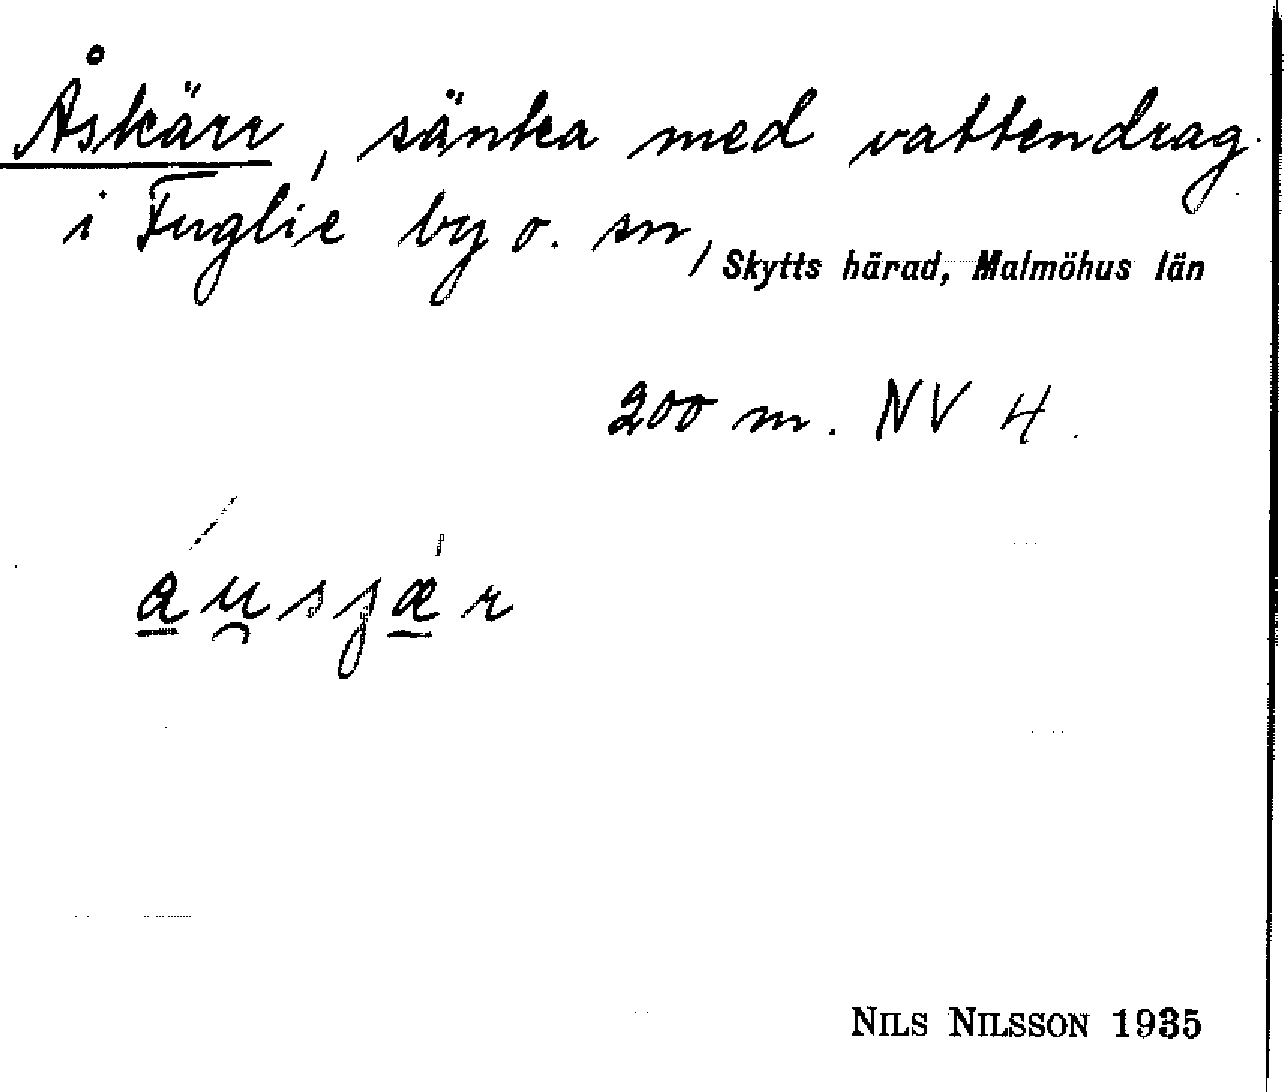 Åskärr, sänka med vattendrag
i Fuglie by o. sn, Skytts härad, Malmöhus län
200 m. NV 4.
áu̯sjær
NILS NILSSON 1935